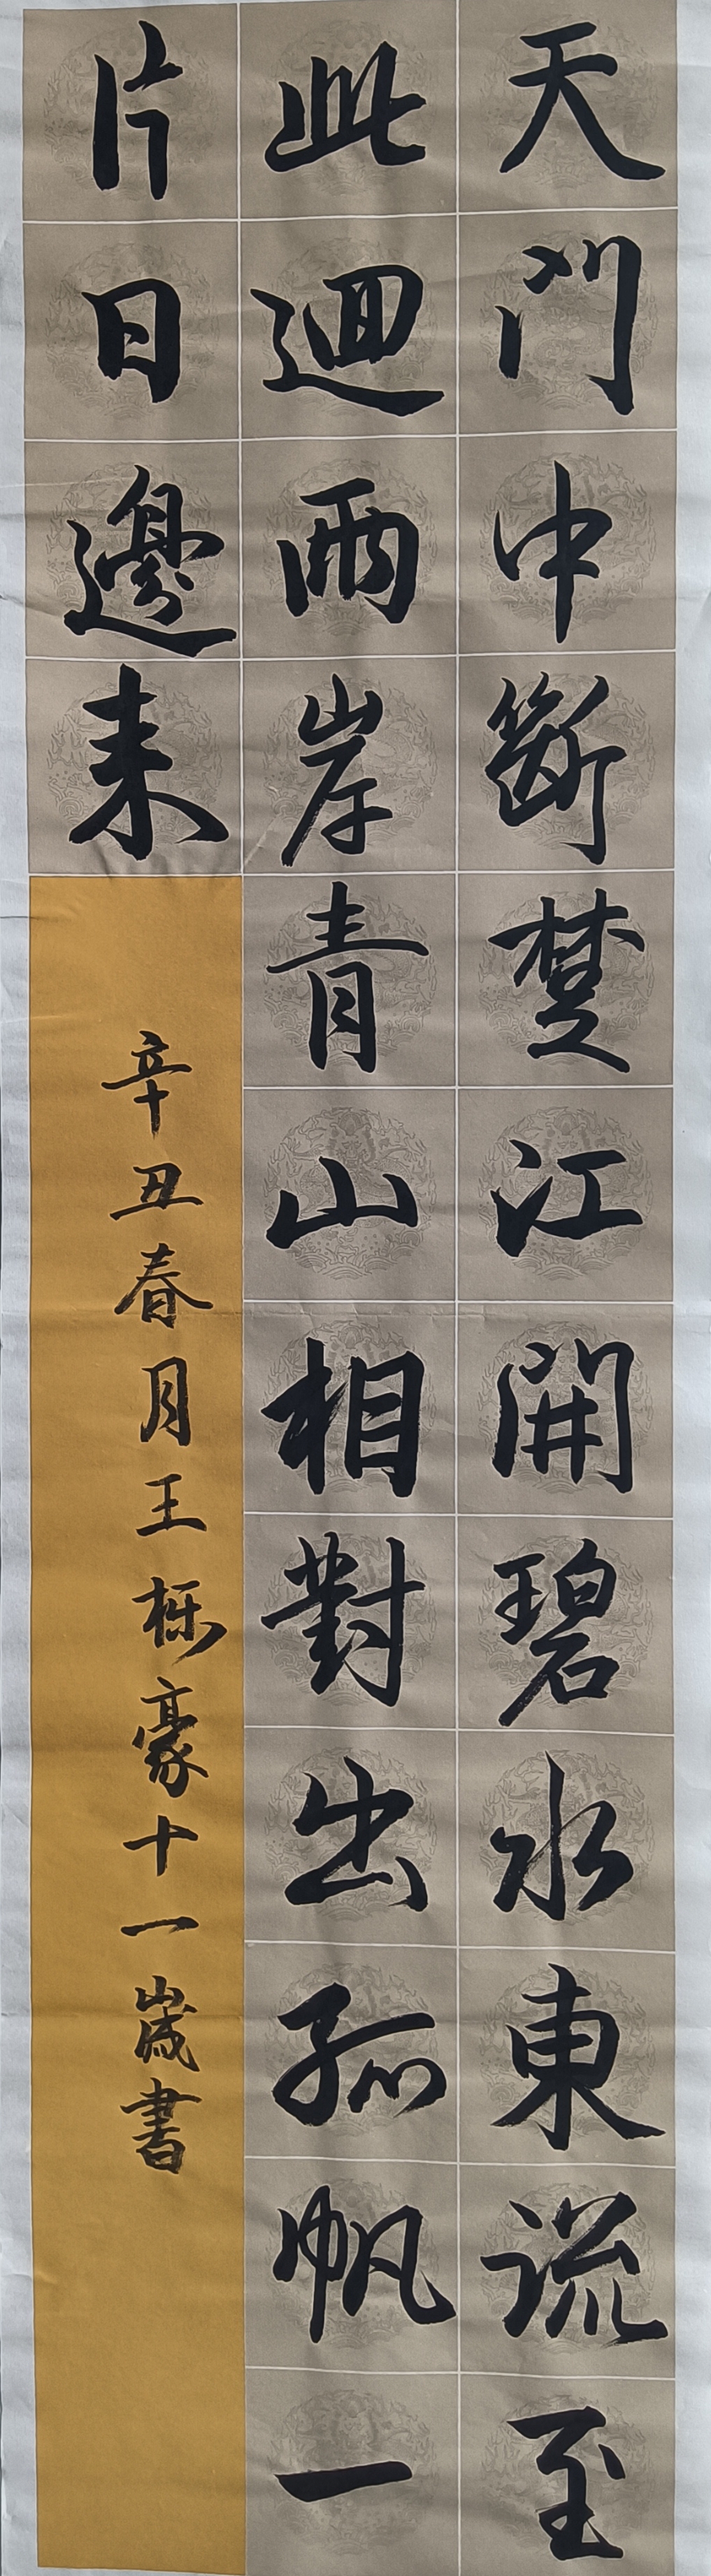 天門中斷楚江開碧水東流至
此迴兩岸青山相對出孤帆一
片日邊来
辛丑春月王栎豪十一歲書